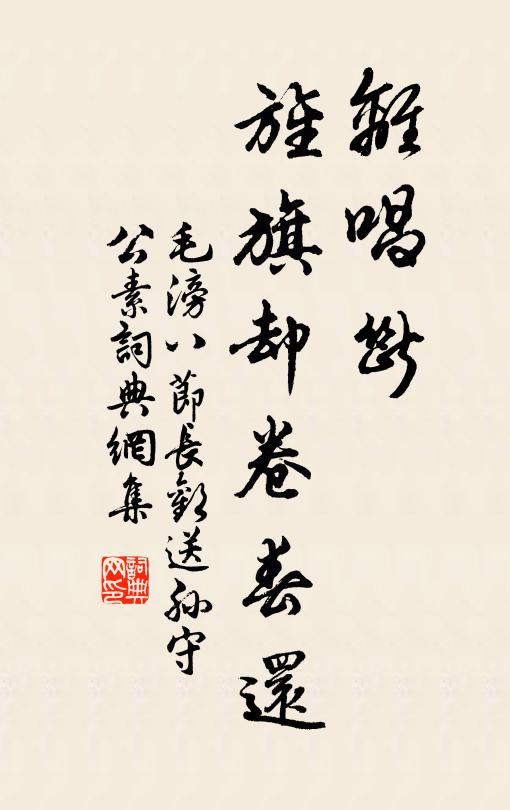 離唱斷
旌旗却卷春還
毛滂八節長歡送孫守
公素詞典網集
詞典网印